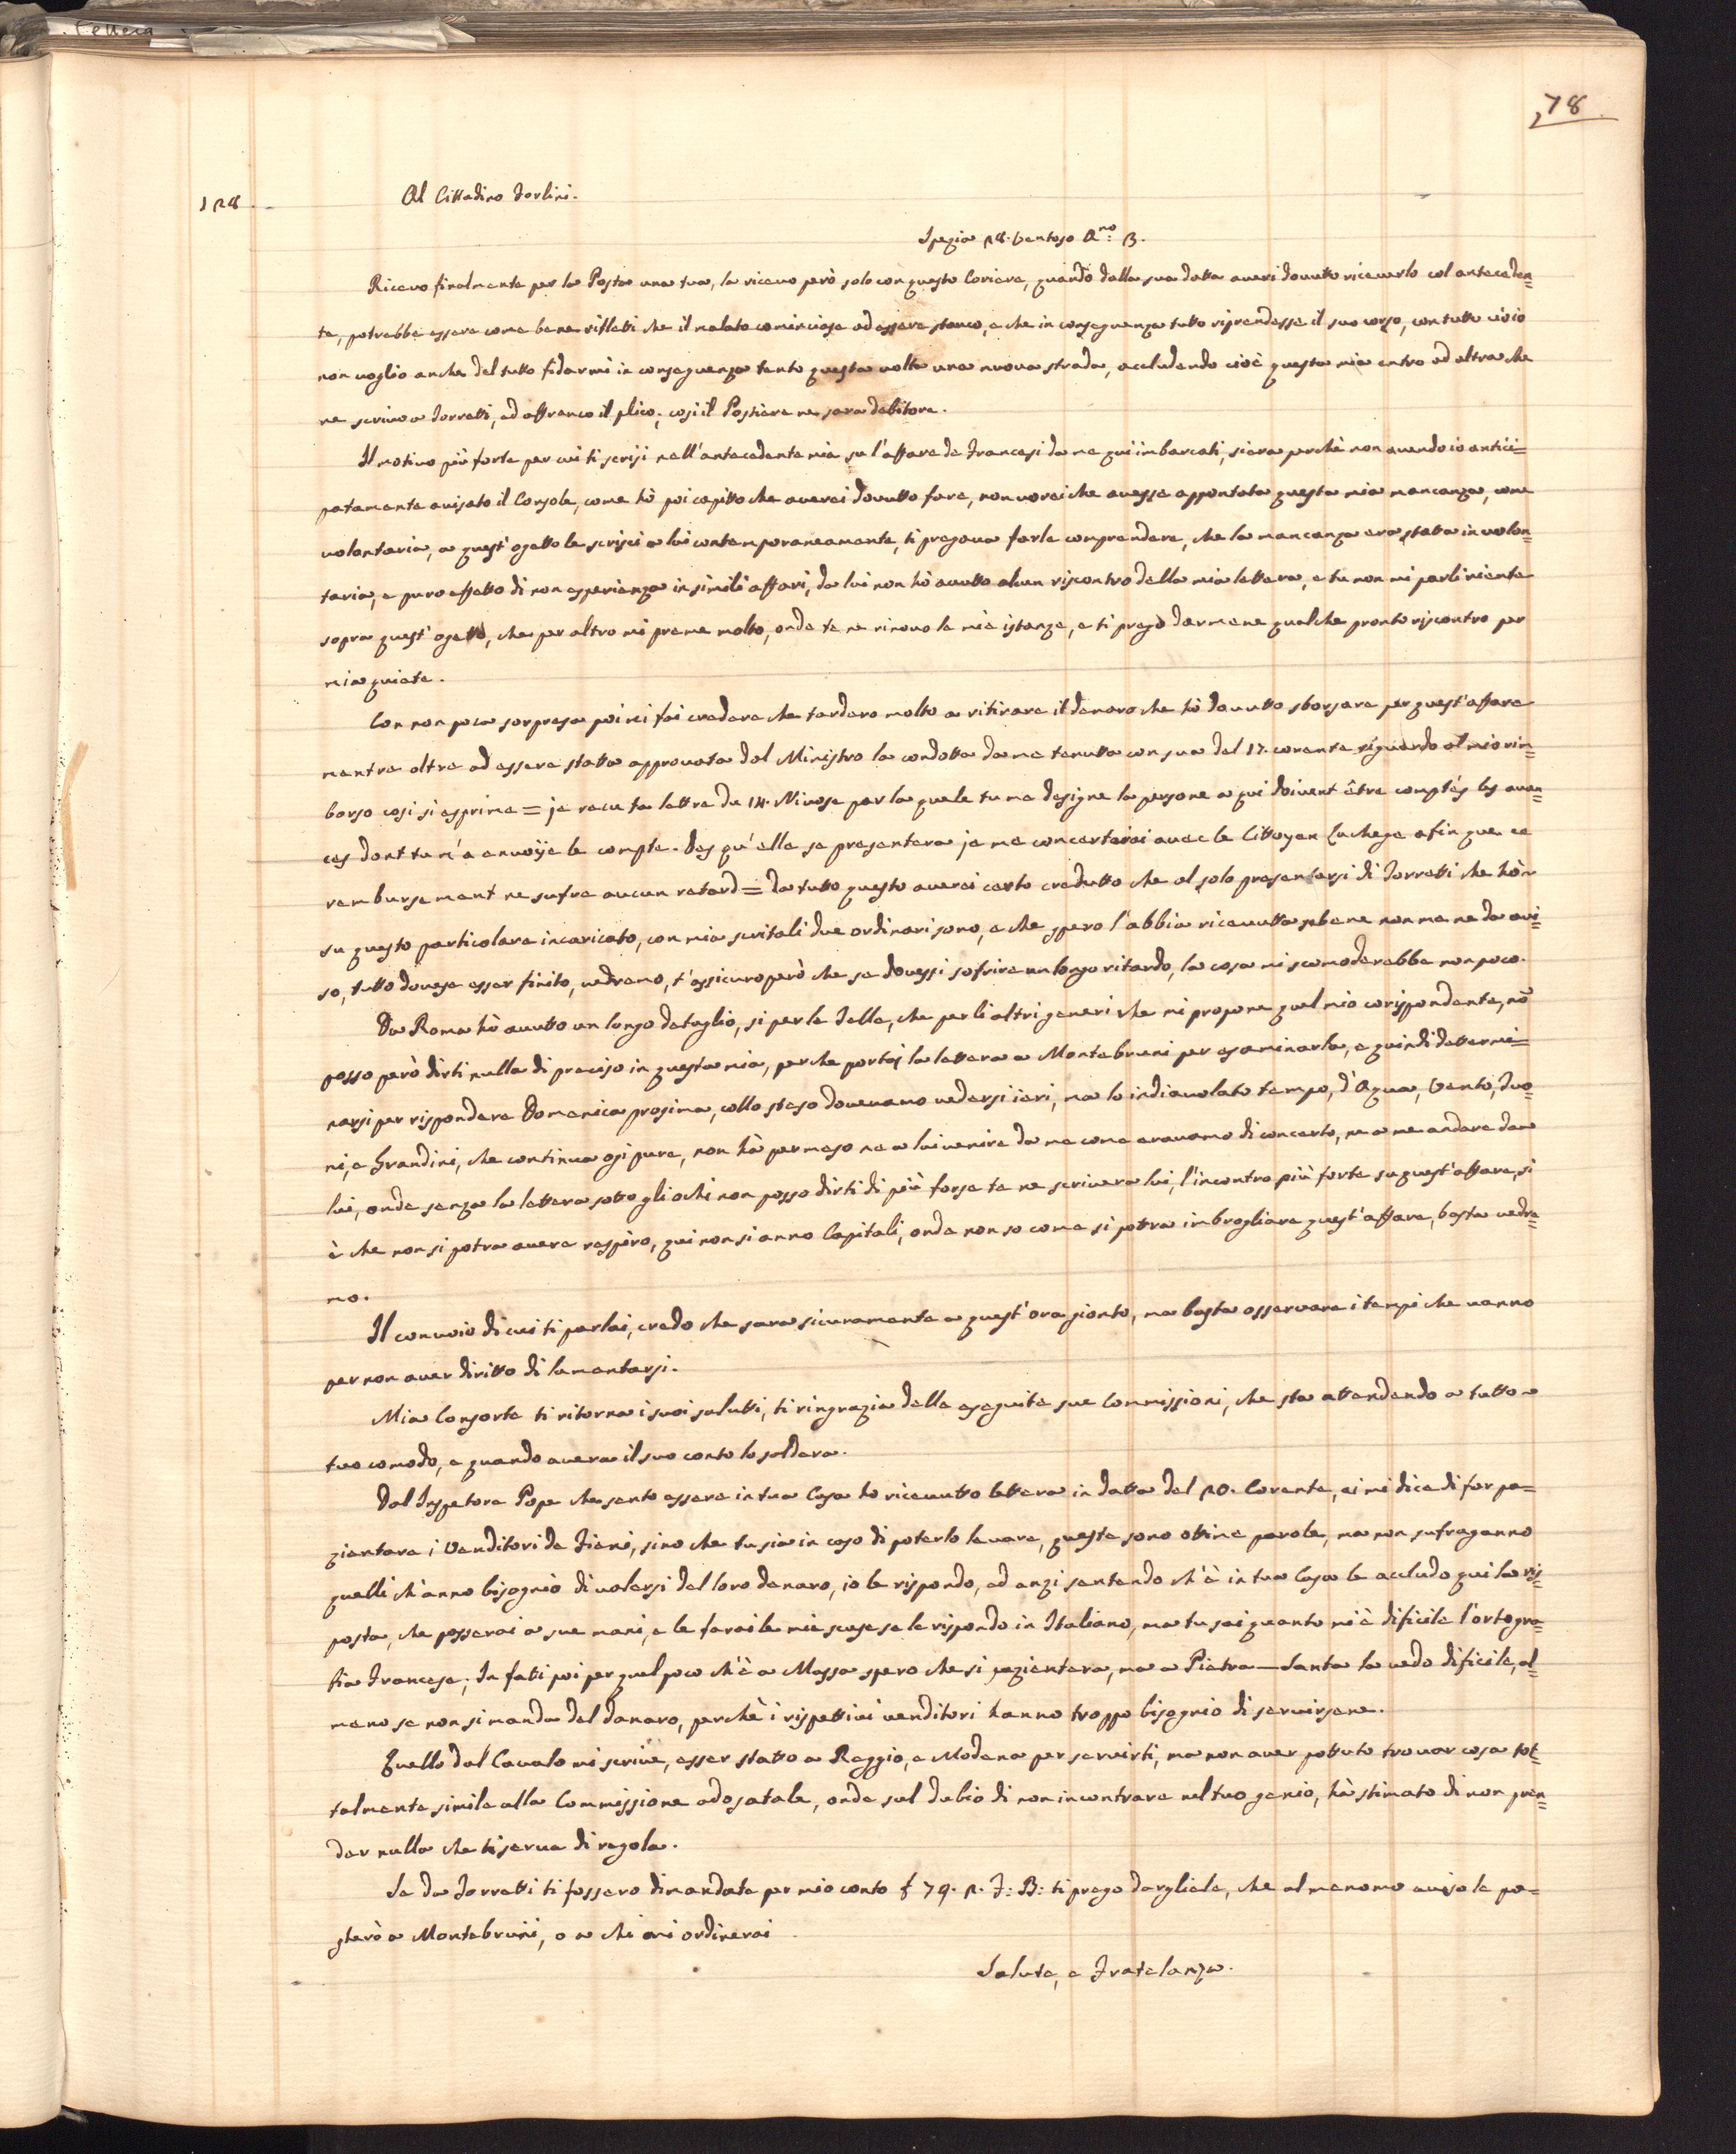 78
128. Al Cittadino Forlini.
Spezia 28. Ventoso A.no 3.
Ricevo finalmente per la Posta una tua, la ricevo però solo con questo Coriere, quando dalla sua datta averi dovutto riceverlo col anteceden=
te, potrebbe essere come bene rifleti che il malato cominciase ad essere stanco, e che in conseguenza tutto riprendesse il suo corso, con tutto ciò io
non voglio anche del tutto fidarmi in conseguenza tento questa volta una nuova strada, accludendo cioè questa mia entro ad altra che
ne scrivo a Forretti, ed affranco il plico; così il Postiere ne sara debitore.
Il motivo più forte per cui ti scrisi nell'antecedente mia su l'affare de Francesi da me qui imbarcati, si era perchè non avendo io antici=
patamente avisato il Console, come hò poi capitto che averei dovutto fare, non vorei che avesse appontata questa mia mancanza, come
volontaria, a quest'ogetto le scrisi a lui contemporaneamente, ti pregava farle comprendere, che la mancanza era statta involon=
taria, e puro effetto di non esperienza in simili affari, da lui non hò avutto alcun riscontro della mia lettera, e tu non mi parli niente
sopra quest'ogetto, che per altro mi preme molto, onde te ne rinovo le mie istanze, e ti prego darmene qualche pronto riscontro per
mia quiete.
Con non poca sorpresa poi mi fai credere che tardero molto a ritirare il denaro che hò dovutto sborsare per quest'affare
mentre oltre ad essere statta approvata dal Ministro la condotta da me tenutta con sua del 17. corente riguardo al mio rin=
borso cosi si esprime = je recu ta lettre du 14. Nivose par la quele tu me designe la persone a qui doivent être comptés les avan=
ces dont tu m'a envoije le compte. Des qu'elle se presentera je me concerterai avec le Cittoyen Luchege afin que ce
rembursement ne sufre aucun retard = da tutto questo averei certo credutto che al solo presentarsi di Forretti che hò
su questo particolare incaricato, con mia scritali due ordinari sono, e che spero l'abbia ricevutta sebene non me ne da avi=
so, tutto dovese esser finito, vedremo, t'assicuro però che se dovessi sofrire un longo ritardo, la cosa mi scomoderebbe non poco.
Da Roma hò avutto un longo detaglio, si per le Telle, che per li altri generi che mi propone quel mio corispondente, nō
posso però dirti nulla di preciso in questa mia, perche portaj la lettera a Montebruni per esaminarla, e quindi dettermi=
narsi per rispondere Domenica prosima, collo steso dovevamo vedersi ieri, ma lo indiavolato tempo, d'Aqua, Vento, Tuo=
ni, e Grandini, che continua ogi pure, non hà permeso ne a lui venire da me come eravamo di concerto, ne a me andare da
lui, onde senza la lettera sotto gli ochi non posso dirti di più forse te ne scrivera lui, l'incontro più forte su quest'affare, si
è che non si potra avere respiro, qui non si anno Capitali, onde non so come si pottra imbrogliare quest'affare, basta vedre=
mo.
Il convoio di cui ti parlai, credo che sara sicuramente a quest'ora gionto, ma basta osservare i tempi che vanno
per non aver diritto di lamentarsi.
Mia Consorte ti ritorna i suoi salutti, ti ringrazia delle eseguite sue Commissioni, che sta attendendo a tutto
tuo comodo, e quando avera il suo conto lo saldera.
Dal Inspetore Pope che sento essere in tua Casa ho ricevutto lettera in datta del 20. Corente, ei mi dice di far pa=
zientare i Venditori de Fieni, sino che tu sia in caso di poterlo levare, queste sono ottime parole, ma non sufraganno
quelli ch'anno bisognio di valersi del loro denaro, io le rispondo, ed anzi sentendo ch'è in tua Casa le accludo qui la ris=
posta, che passerai a sue mani, e le farai le mie scuse se le rispondo in Italiano, ma tu sai quanto mi è dificile l'ortogra=
fia Francese; In fati poi per quel poco ch'è a Massa spero che si pazientera, ma a Pietra-Santa la vedo dificile, al=
meno se non si manda del denaro, perchè i rispettivi venditori hanno troppo bisognio di servirsene.
Quello dal Cavalo mi scrive, esser statto a Reggio, e Modena per servirti, ma non aver pottuto trovar cosa tot=
talmente simile alla Commissione adosatale, onde sul dubio di non incontrare nel tuo genio, hà stimato di non pren=
der nulla che ti serva di regola.
Se da Forretti ti fossero dimandate per mio conto £ 79. 2. F: B: ti prego dargliele, che al menomo aviso le pa=
gherò a Montebruni, o a chi mi ordinerai
Salute, e Fratelanza.